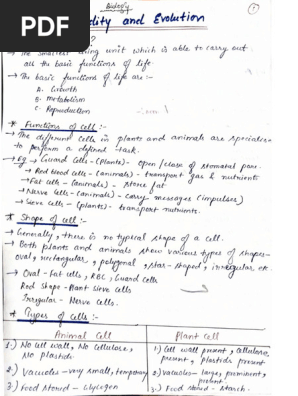 PDF
Biology
1
dity and Evolution
?
→ The smallest living unit which is able to carry out
all the basic functions of life.
→ The basic functions of life are :-
A. Growth
B. Metabolism
C. Reproduction
* Functions of Cell :-
→ The different cells in plants and animals are specialise
to perform a defined task.
→ Eg → Guard Cells - (Plants) - open/close of stomatal pore.
→ Red blood cells - (animals) - transport gas & nutrients
→ Fat cells - (animals) - store fat
→ Nerve Cells - (animals) - carry messages (impulses)
→ Sieve cells - (plants) - transport nutrients.
* Shape of cell :-
→ Generally, there is no typical shape of a cell.
→ Both plants and animals show various types of shapes-
oval, rectangular, polygonal, star-shaped, irregular, etc.
→ Oval - Fat cells, RBC, Guard cells
Rod shape - Plant sieve cells
Irregular - Nerve cells.
* Types of Cells :-
Animal Cell Plant Cell
1.) No Cell wall, No Cellulose, 1.) Cell wall present, cellulose
No plastids. present, plastids present
2.) Vacuoles - very small, temporary 2.) Vacuoles - large, prominent,
present.
3.) Food stored - Glycogen 3.) Food stored - Starch.